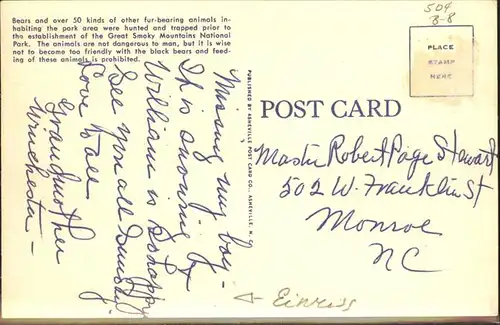 Bears and over 50 kinds of other fur-bearing animals in-
habiting the park area were hunted and trapped prior to
the establishment of the Great Smoky Mountains National
Park. The animals are not dangerous to man, but it is wise
not to become too friendly with the black bears and feed-
ing of these animals is prohibited.
Missing my boy-
It is snowing &
William is so happy
See you all Sunday.
Love to all
Grandmother
Winchester-
PUBLISHED BY ASHEVILLE POST CARD CO., ASHEVILLE, N. C.
POST CARD
504
B-8
PLACE
STAMP
HERE
Master Robert Page Stewart
502 W. Franklin St
Monroe
NC
Einriss